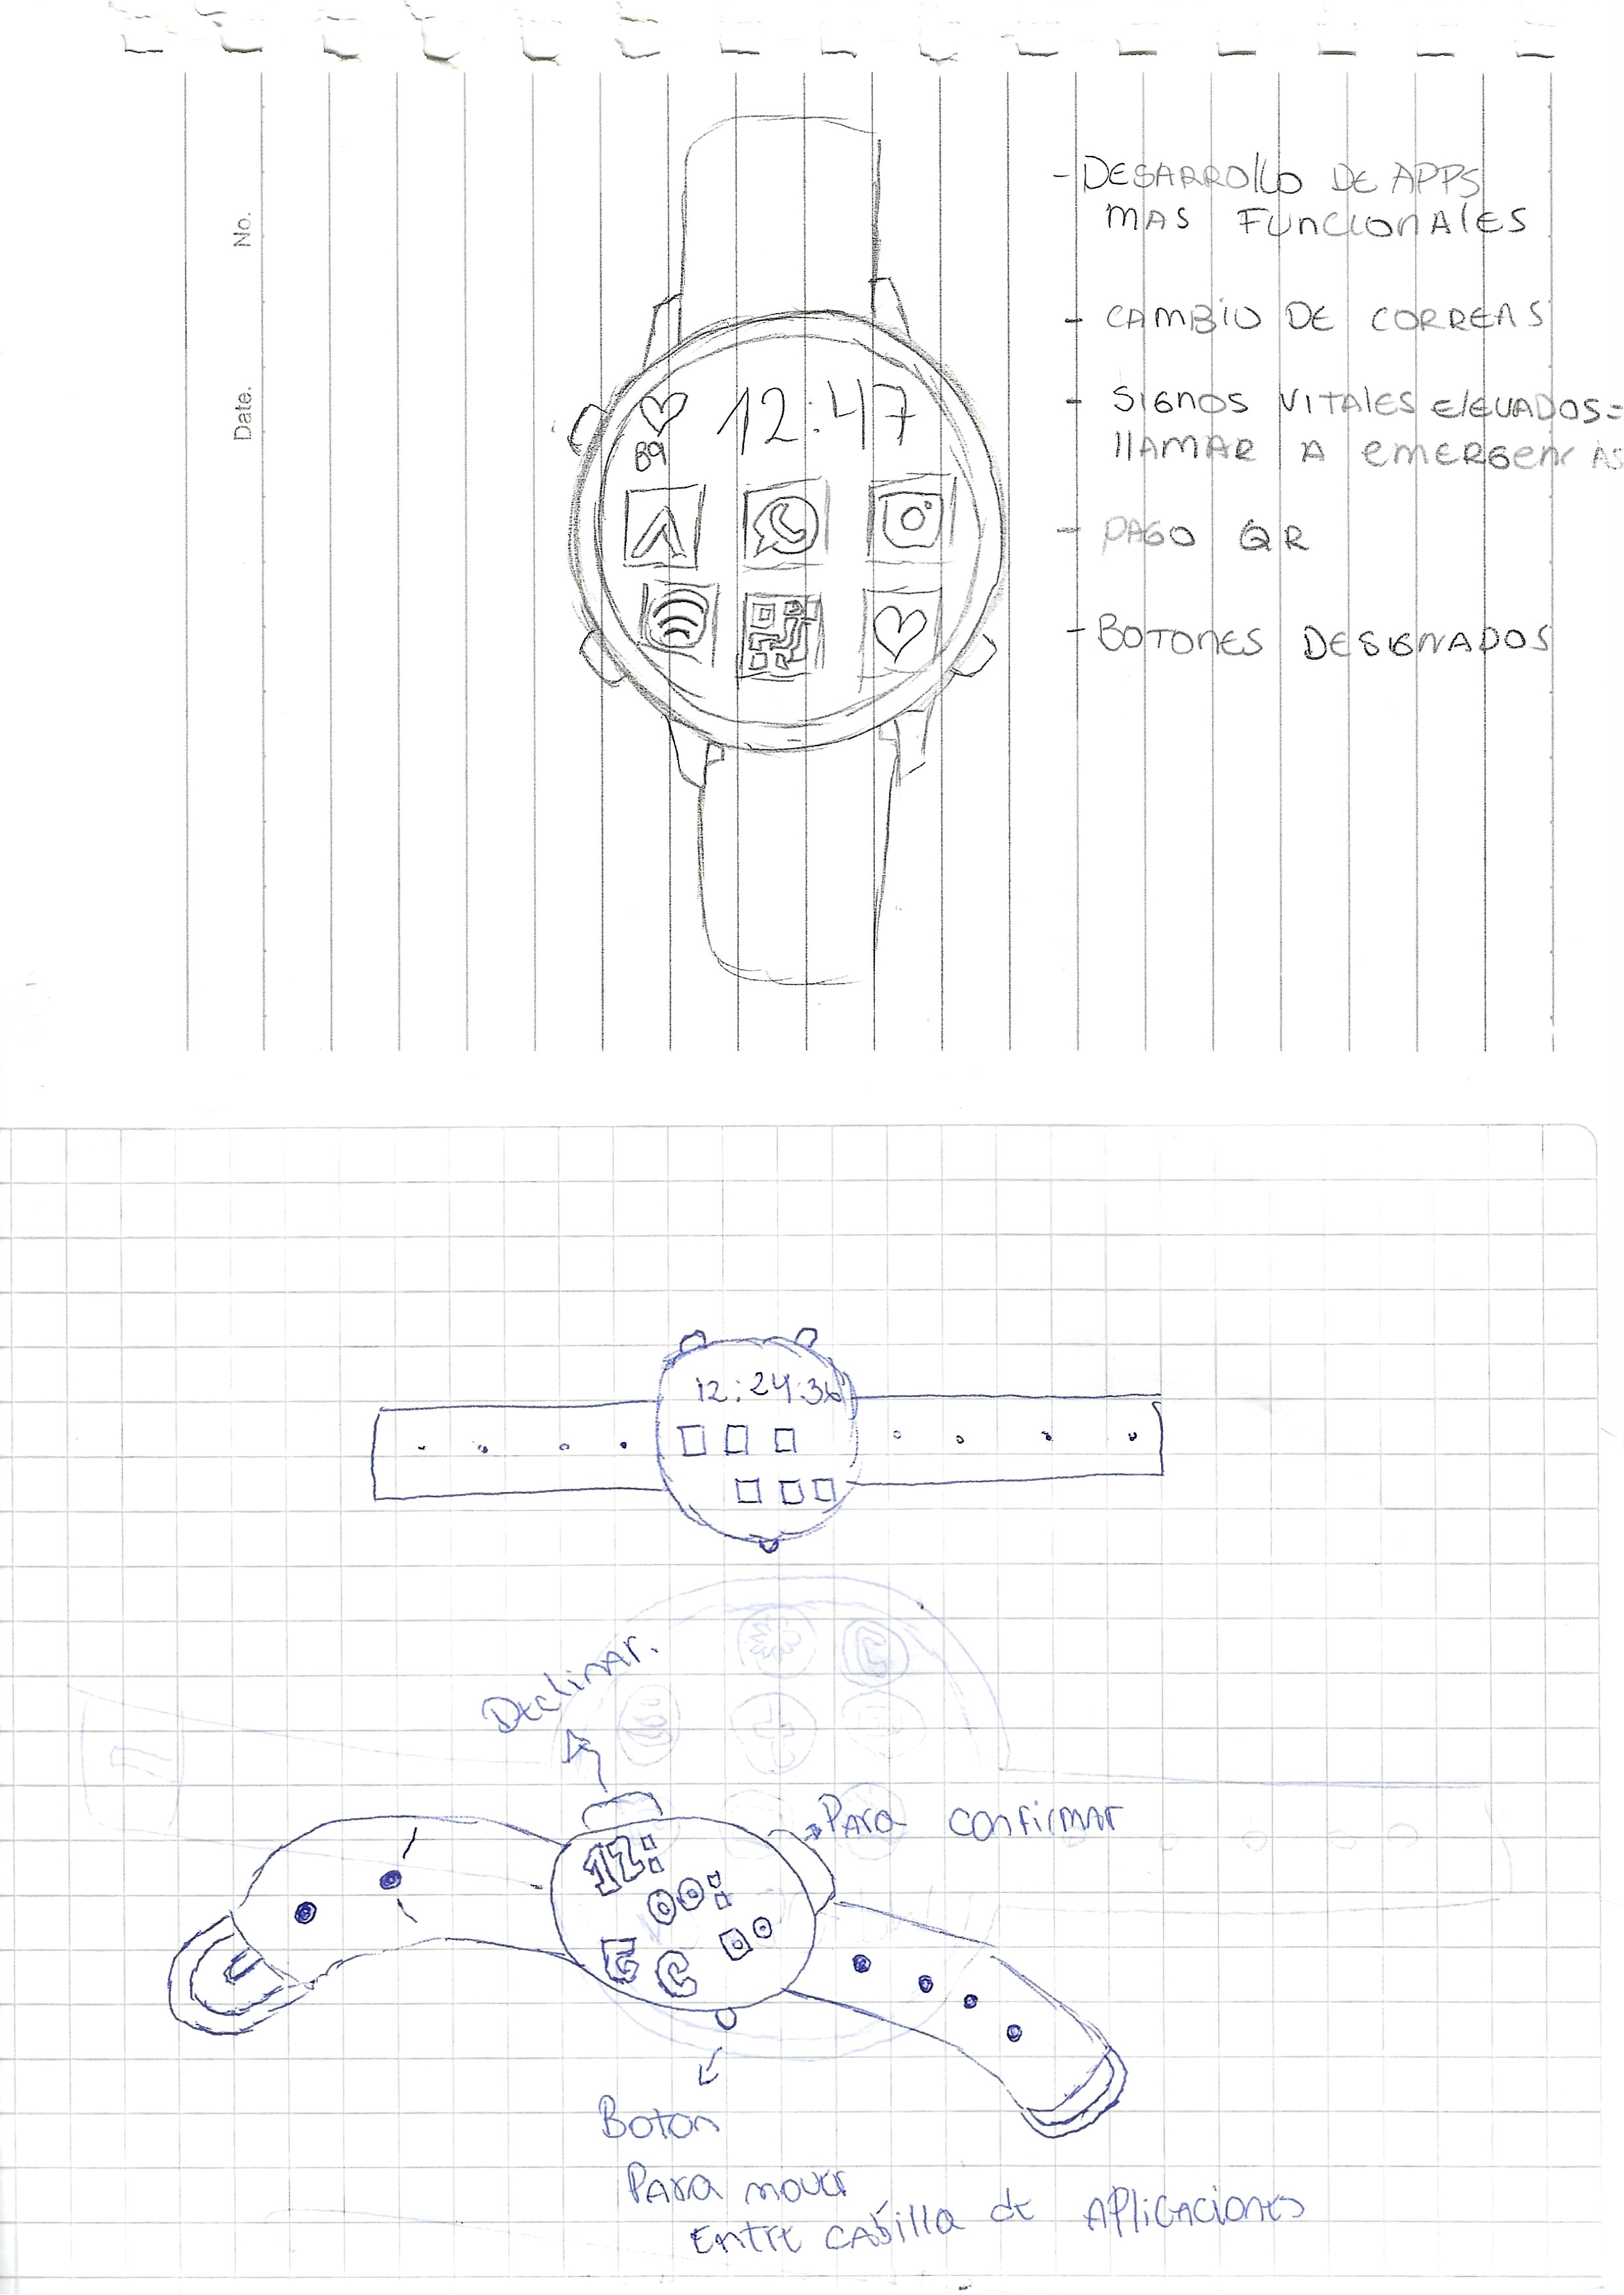 No.
Date.
- DESARROllO DE APPS
MAS FUNCIONALES
- CAMBIO DE CORREAS
- SIGNOS VITALES ElEVADOS=
llAMAR A EMERGENCIAS
- PAGO QR
- BOTONES DESIGNADOS
12:47
89
12:24:36
Declinar.
Para confirmar
12:
00:
00
Boton
Para mover
Entre casilla de Aplicaciones